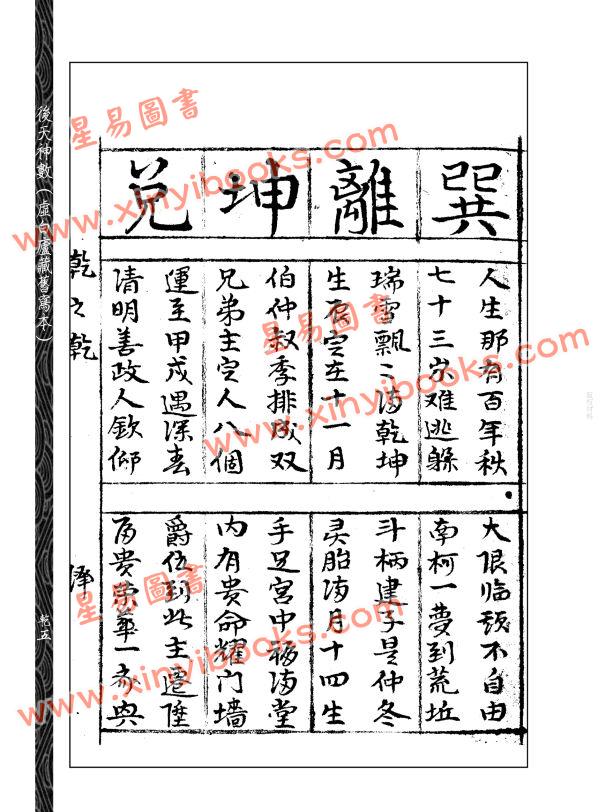 巽
離
坤
兌
人生那有百年秋
七十三岁难逃躲
瑞雪飄〻满乾坤
生辰定在十一月
伯仲叔季排成双
兄弟主定人八個
運至甲戌遇深春
清明善政人欽仰
大限临頭不自由
南柯一夢到荒坵
斗柄建子是仲冬
灵胎满月十四生
手足宫中福满堂
内有贵命耀门墙
爵位到此主遷陞
富贵荣華一齐
乾之乾
後天神數（虛白廬藏舊寫本）
乾五
星易圖書
www.xinyibooks.com
星易圖書
www.xinyibooks.com
星易圖書
www.xinyibooks.com